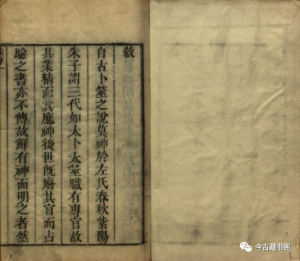 敘
自古卜筮之說莫神於左氏春秋紫陽
朱子謂三代如太卜太筮職有專官故
其業精而其應神後世既廢其官而占
驗之書亦不傳故鮮有神而明之者然
今古藏书阁